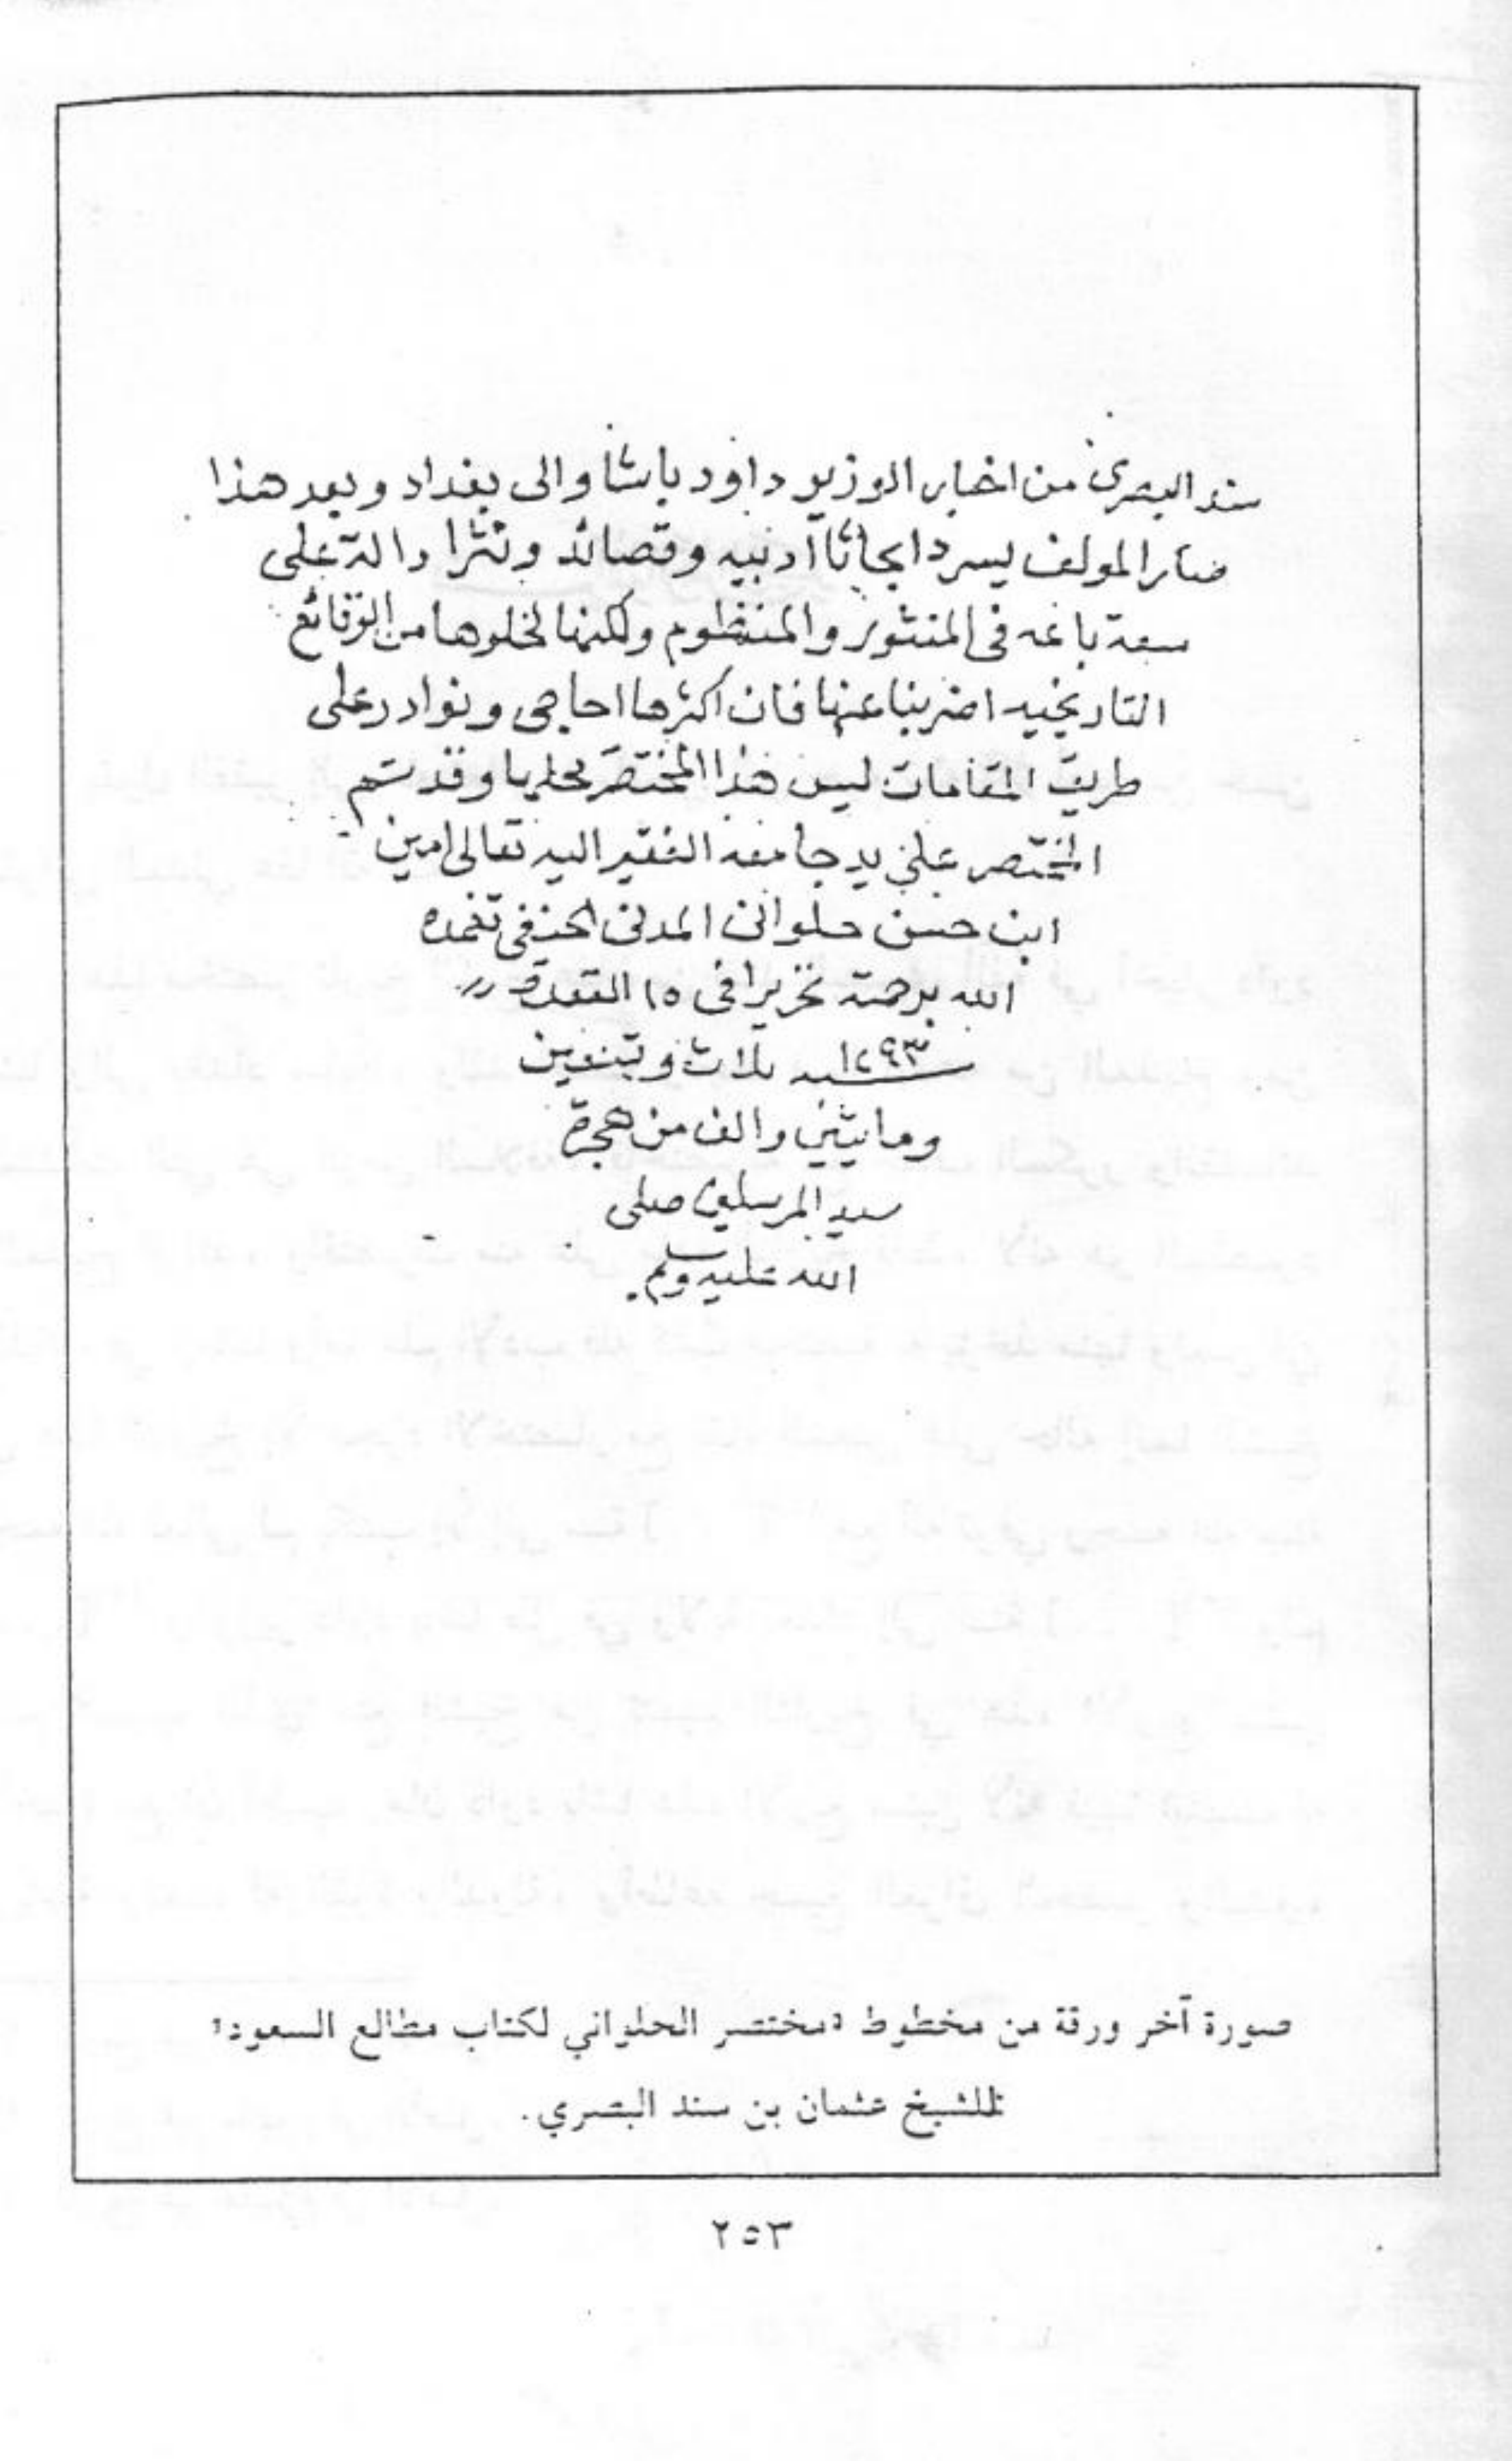 سند البصري من اخبار الوزير داود باشا والى بغداد وبعد هذا
صار المولف يسرد ابحاثا آدبيه وقصائد ونثرا دالة على
سعة باعه فى المنثور والمنظوم ولكنها لخلوها من الوقائع
التاريخيه اضربنا عنها فان اكثرها احاجى ونوادر على
طريق المقامات ليس هذا المختصر محلها وقد تم
المختصر على يد جامعه الفقير اليه تعالى امين
ابن حسن حلوانى المدنى الحنفى تغمده
الله برحمته تحريرا فى ١٥ القعدة
سنه ١٢٩٣ ثلاث وتسعين
ومايتين والف من هجرة
سيد المرسلين صلى
الله عليه وسلم.
صورة آخر ورقة من مخطوط «مختصر الحلواني لكتاب مطالع السعود»
للشيخ عثمان بن سند البصري.
٢٥٣